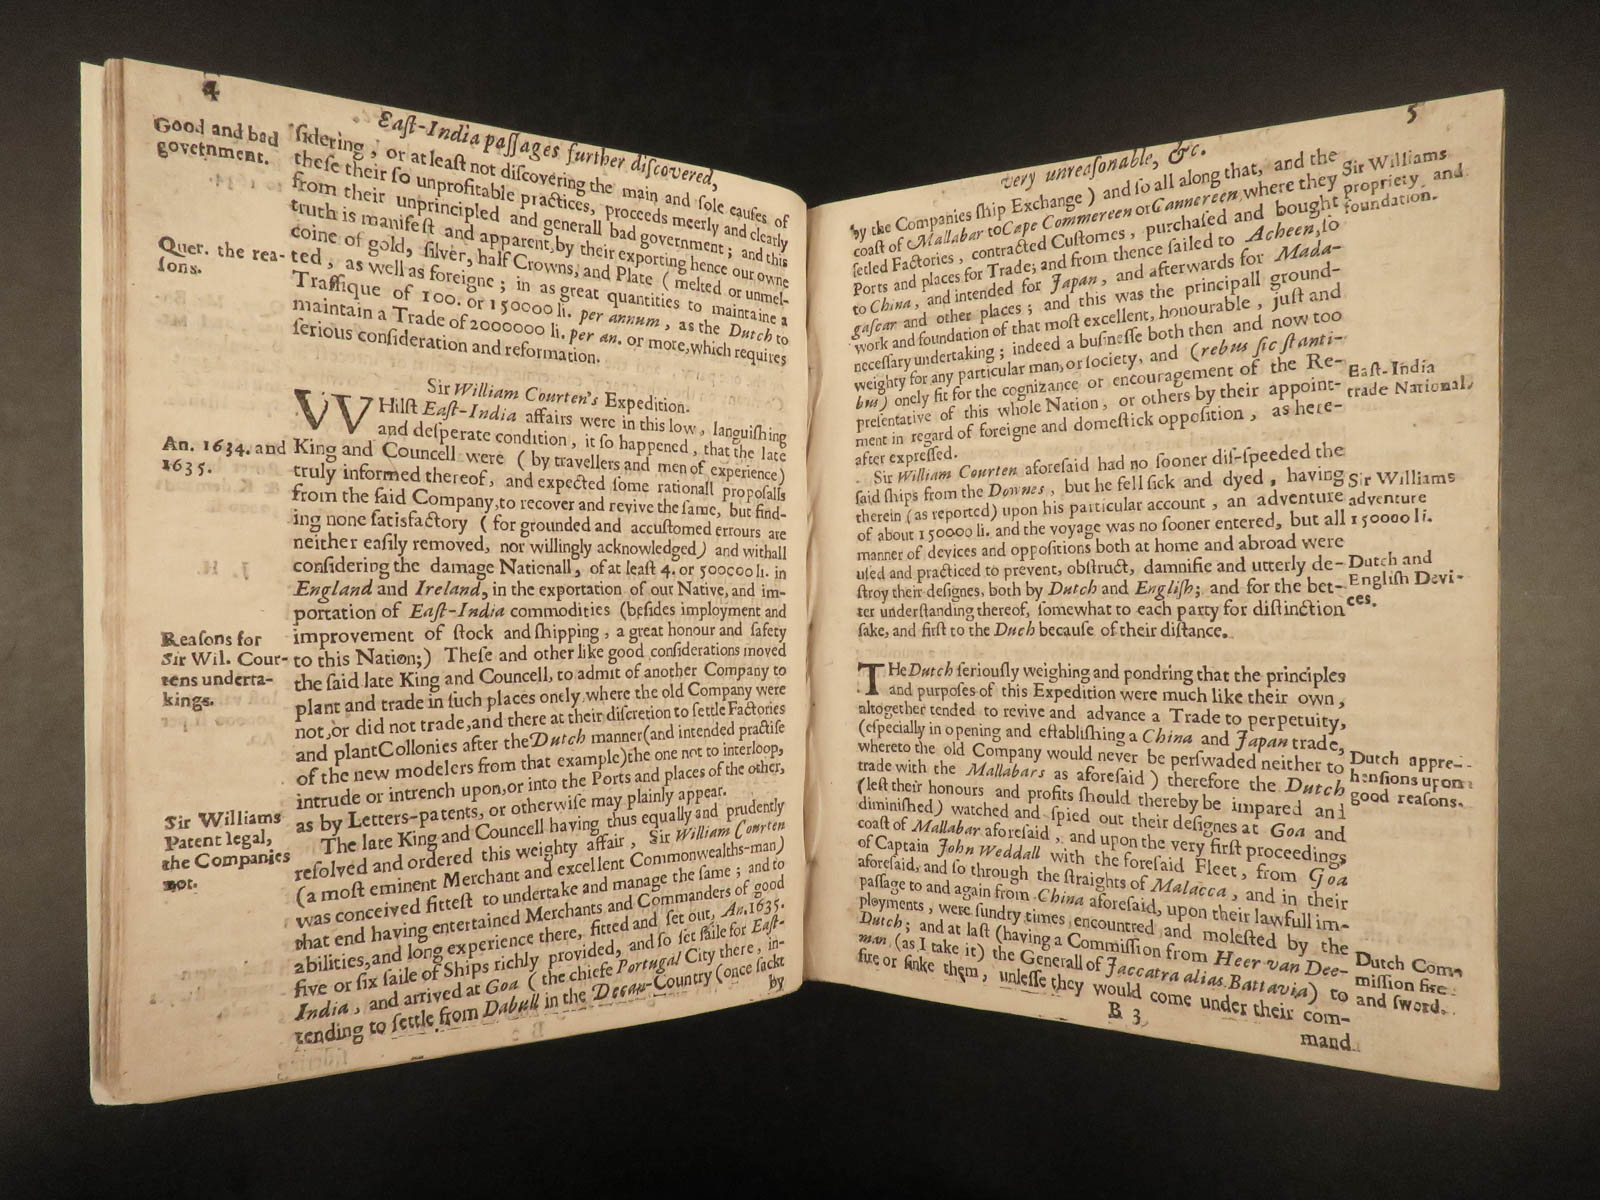 4
East-India passages further discovered,
Good and bad
government.
sidering, or at least not discovering the main and sole causes of
these their so unprofitable practices, proceeds meerly and clearly
from their unprincipled and generall bad government; and this
truth is manifest and apparent, by their exporting hence our owne
coine of gold, silver, half Crowns, and Plate (melted or unmel-
Quer. the rea-
sons.
ted, as well as foreigne; in as great quantities to maintaine a
Traffique of 100. or 150000 li. per annum, as the Dutch to
maintain a Trade of 2000000 li. per an. or more, which requires
serious consideration and reformation.
Sir William Courten's Expedition.
WHilst East-India affairs were in this low, languishing
and desperate condition, it so happened, that the late
An. 1634. and
1635.
King and Councell were (by travellers and men of experience)
truly informed thereof, and expected some rationall proposalls
from the said Company, to recover and revive the same, but find-
ing none satisfactory (for grounded and accustomed errours are
neither easily removed, nor willingly acknowledged) and withall
considering the damage Nationall, of at least 4. or 500000 li. in
England and Ireland, in the exportation of our Native, and im-
portation of East-India commodities (besides imployment and
Reasons for
Sir Wil. Cour-
tens underta-
kings.
improvement of stock and shipping, a great honour and safety
to this Nation;) These and other like good considerations moved
the said late King and Councell, to admit of another Company to
plant and trade in such places onely, where the old Company were
not, or did not trade, and there at their discretion to settle Factories
and plant Collonies after the Dutch manner (and intended practise
of the new modelers from that example) the one not to interloop,
intrude or intrench upon, or into the Ports and places of the other,
as by Letters-patents, or otherwise may plainly appear.
Sir Williams
Patent legal,
the Companies
not.
The late King and Councell having thus equally and prudently
resolved and ordered this weighty affair, Sir William Courten
(a most eminent Merchant and excellent Commonwealths-man)
was conceived fittest to undertake and manage the same; and to
that end having entertained Merchants and Commanders of good
abilities, and long experience there, fitted and set out, An. 1635.
five or six saile of Ships richly provided, and so set saile for East-
India, and arrived at Goa (the chiefe Portugal City there, in-
tending to settle from Dabull in the Decan-Country (once sackt
by
5
very unreasonable, &c.
by the Companies ship Exchange) and so all along that, and the
coast of Mallabar to Cape Commereen or Cannereen, where they
Sir Williams
propriety and
foundation.
setled Factories, contracted Customes, purchased and bought
Ports and places for Trade; and from thence sailed to Acheen, so
to China, and intended for Japan, and afterwards for Mada-
gascar and other places; and this was the principall ground-
work and foundation of that most excellent, honourable, just and
necessary undertaking; indeed a businesse both then and now too
weighty for any particular man, or society, and (rebus sic stanti-
bus) onely fit for the cognizance or encouragement of the Re-
East-India
trade National.
presentative of this whole Nation, or others by their appoint-
ment in regard of foreigne and domestick opposition, as here-
after expressed.
Sir William Courten aforesaid had no sooner dis-speeded the
said ships from the Downes, but he fell sick and dyed, having
Sir Williams
adventure
150000 li.
therein (as reported) upon his particular account, an adventure
of about 150000 li. and the voyage was no sooner entered, but all
manner of devices and oppositions both at home and abroad were
used and practiced to prevent, obstruct, damnifie and utterly de-
Dutch and
English Devi-
ces.
stroy their designes, both by Dutch and English; and for the bet-
ter understanding thereof, somewhat to each party for distinction
sake, and first to the Duch because of their distance.
THe Dutch seriously weighing and pondring that the principles
and purposes of this Expedition were much like their own,
altogether tended to revive and advance a Trade to perpetuity,
(especially in opening and establishing a China and Japan trade,
whereto the old Company would never be perswaded neither to
Dutch appre-
hensions upon
good reasons.
trade with the Mallabars as aforesaid) therefore the Dutch
(lest their honours and profits should thereby be impared and
diminished) watched and spied out their designes at Goa and
coast of Mallabar aforesaid, and upon the very first proceedings
of Captain John Weddall with the foresaid Fleet, from Goa
aforesaid, and so through the straights of Malacca, and in their
passage to and again from China aforesaid, upon their lawfull im-
ployments, were sundry times encountred and molested by the
Dutch; and at last (having a Commission from Heer van Dee-
Dutch Com-
mission fire
and sword.
man, (as I take it) the Generall of Jaccatra alias Battavia) to
fire or sinke them, unlesse they would come under their com-
B 3
mand